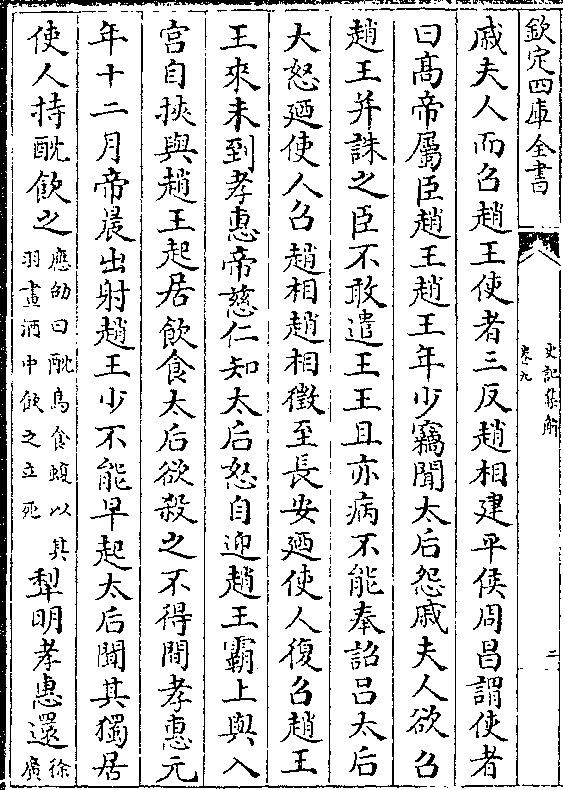 欽定四庫全書
史記集解
卷九
二
戚夫人而召趙王使者三反趙相建平侯周昌謂使者
曰髙帝屬臣趙王趙王年少竊聞太后怨戚夫人欲召
趙王并誅之臣不敢遣王王且亦病不能奉詔吕太后
大怒廼使人召趙相趙相徵至長安廼使人復召趙王
王來未到孝惠帝慈仁知太后怒自迎趙王霸上與入
宫自挾與趙王起居飲食太后欲殺之不得間孝惠元
年十二月帝晨出射趙王少不能早起太后聞其獨居
使人持酖飲之應劭曰酖鳥食蝮以其羽畫酒中飲之立死犁明孝惠還徐廣